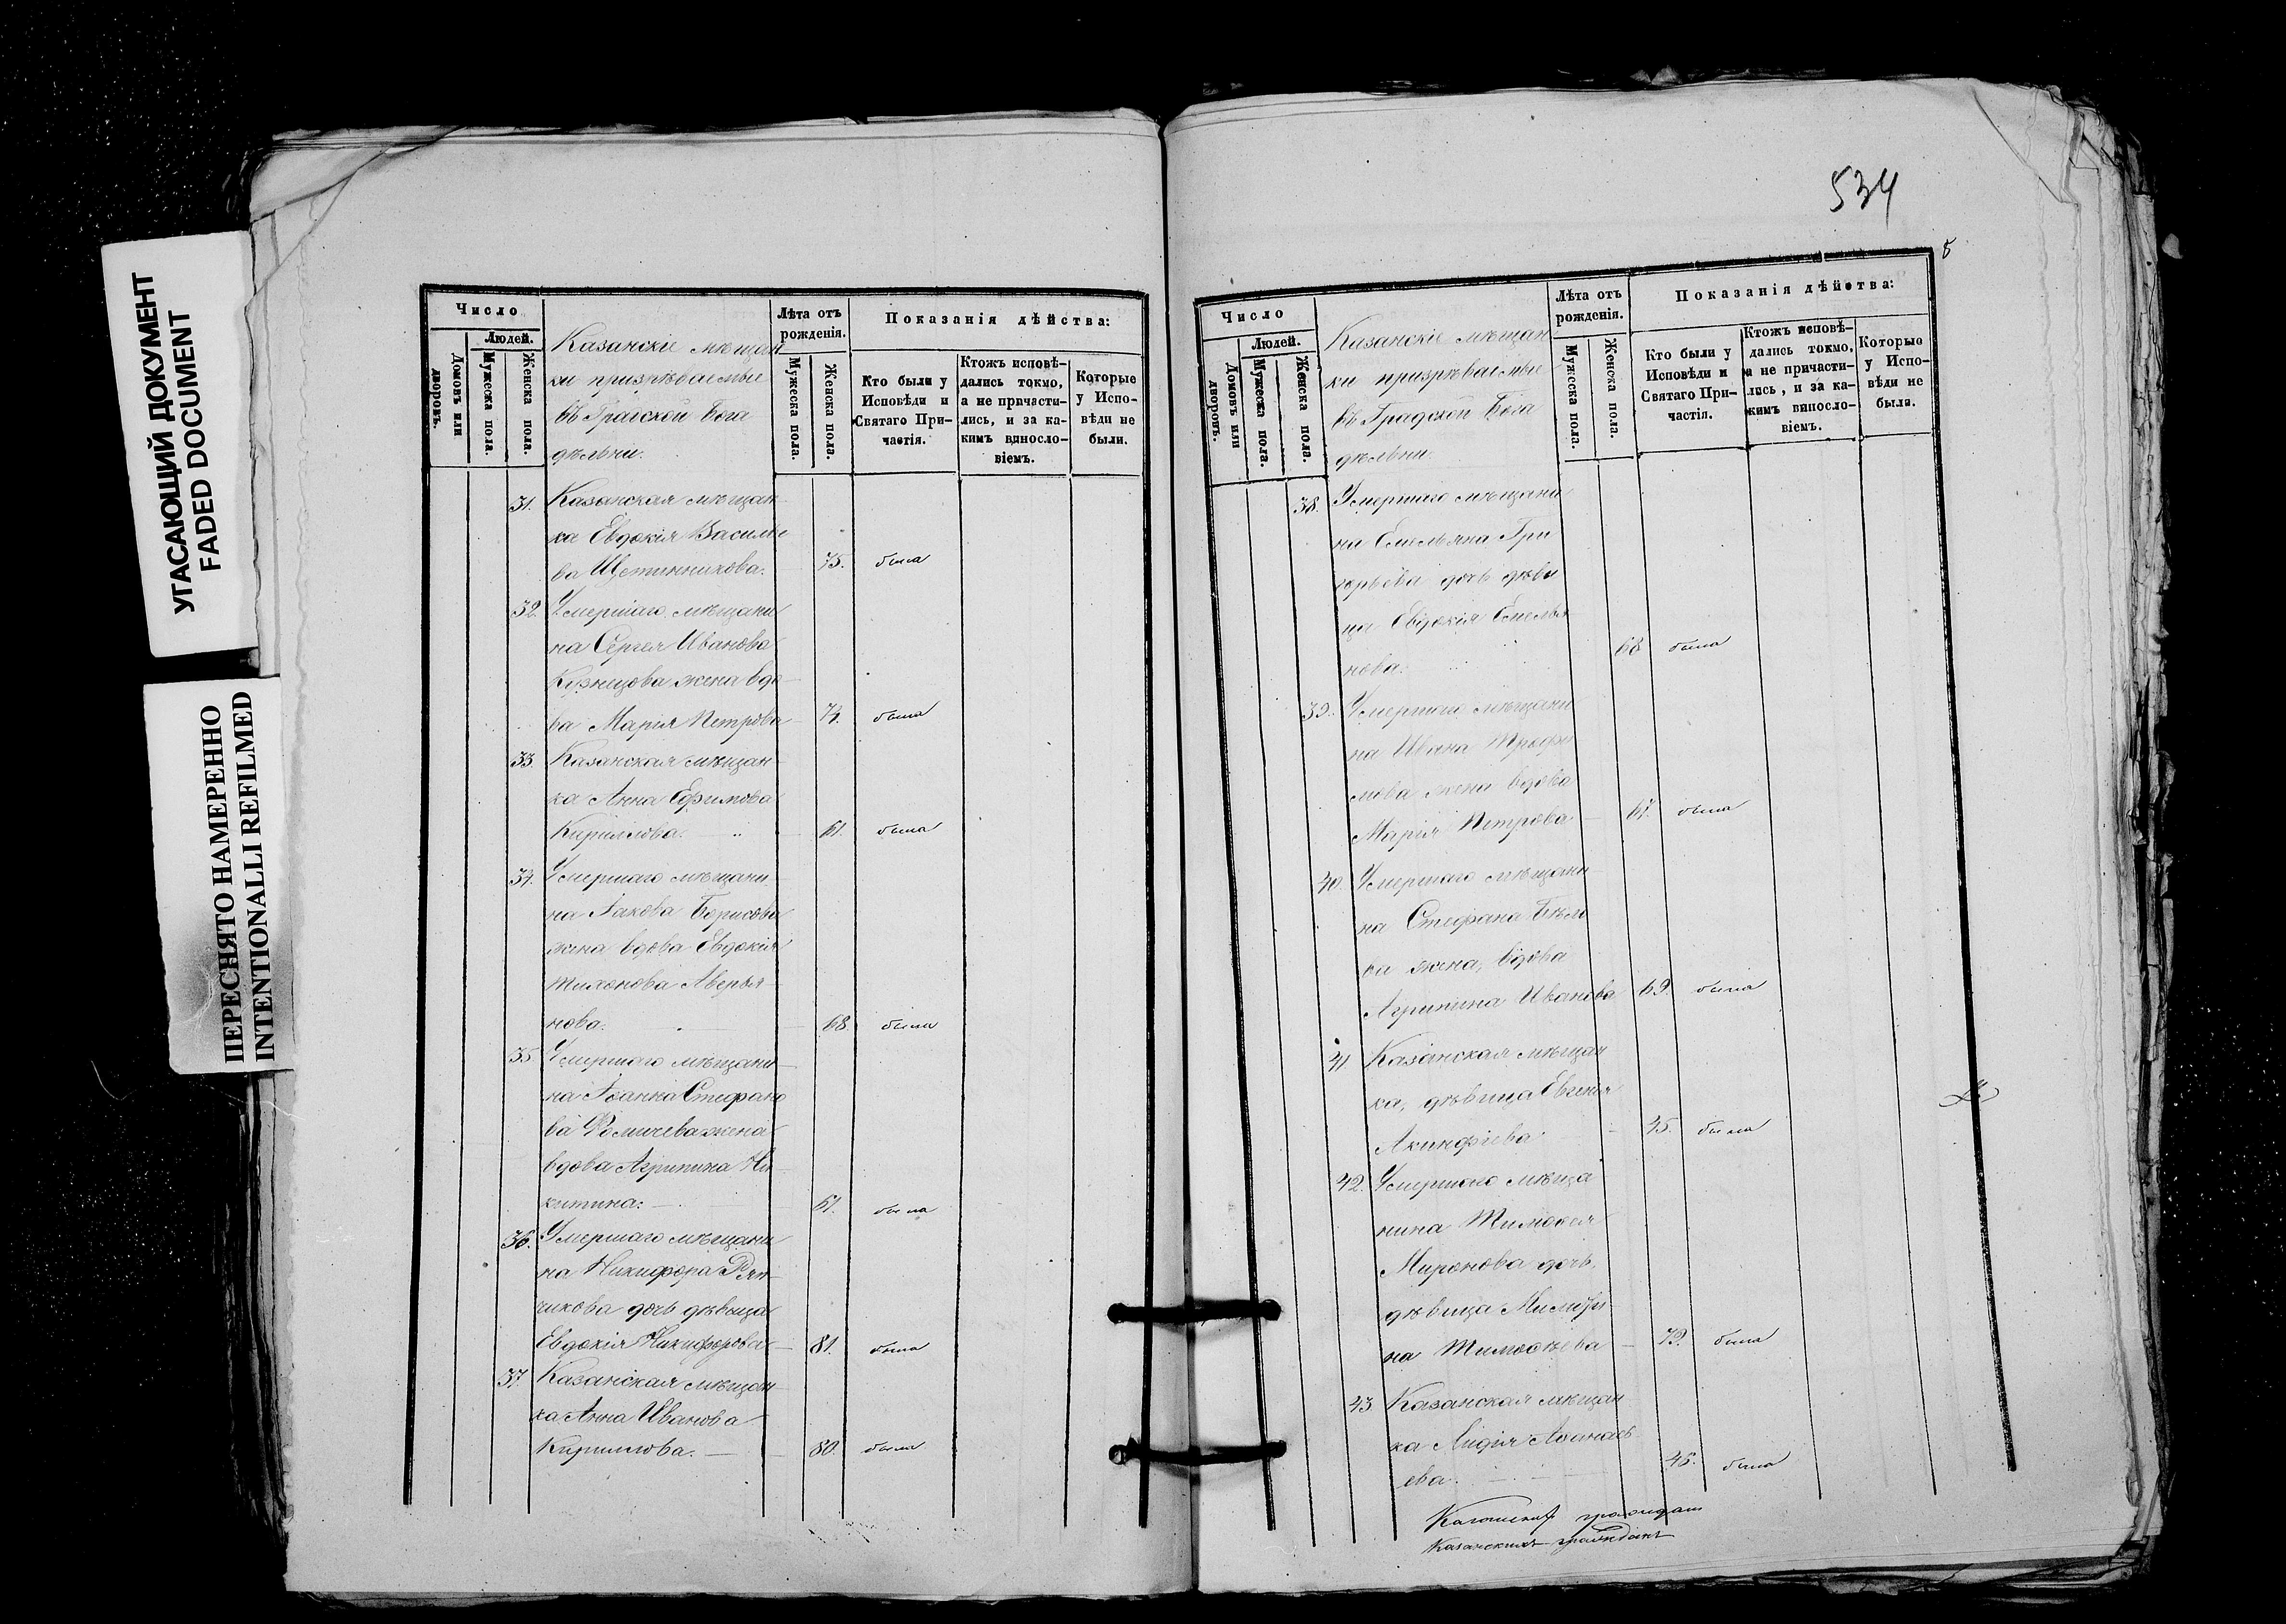 УГАСАЮЩИЙ ДОКУМЕНТ
FADED DOCUMENT
ПЕРЕСНЯТО НАМЕРЕННО
INTENTIONALLI REFILMED
Число
Людей.
Домовъ или дворовъ.
Мужеска пола.
Женска пола.
Казанскіе мѣщан
ки призрѣваемые
въ Градской Бога
дѣльни.
Лѣта отъ
рожденія.
Мужеска пола.
Женска пола.
Показанія дѣйства:
Кто были у
Исповѣди и
Святаго При-
частія.
Ктожъ исповѣ-
дались токмо,
а не причасти-
лись, и за ка-
кимъ виносло-
віемъ.
Которые
у Испо-
вѣди не
были.
31. Казанская мѣщан-
ка Евдокія Василье
ва Щетинникова. 75. была
32. Умершаго мѣщани
на Сергея Иванова
Кузнецова жена вдо-
ва Марія Петрова 74. была
33. Казанская мѣщан-
ка Анна Ефимова
Кириллова. 61. была
34. Умершаго мѣщани-
на Іакова Борисова
жена вдова Евдокія
Тихонова Аверья-
нова. 68. была
35 Умершаго мѣщани-
на Іоанна Стефано
ва Фомичева жена
вдова Агрипина Ни-
китина. 61. была
36. Умершаго мѣщани
на Никифора Ряп-
чикова дочь дѣвица
Евдокія Никифорова 81. была
37 Казанская мѣщан-
ка Анна Иванова
Кириллова. 80. была
534
8
Число
Людей.
Домовъ или дворовъ.
Мужеска пола.
Женска пола.
Казанскіе мѣщан
ки призрѣваемые
въ Градской Бога
дѣльни.
Лѣта отъ
рожденія.
Мужеска пола.
Женска пола.
Показанія дѣйства:
Кто были у
Исповѣди и
Святаго При-
частія.
Ктожъ исповѣ-
дались токмо,
а не причасти-
лись, и за ка-
кимъ виносло-
віемъ.
Которые
у Испо-
вѣди не
были.
38. Умершаго мѣщани
на Емельяна Гри
горьева дочь дѣви
ца Евдокія Емелья
нова. 68 была
39. Умершаго мѣщани
на Ивана Трофи
мова жена вдова
Марія Петрова 67. была
40. Умершаго мѣщани-
на Стефана
ва жена, вдова
Агрипина Иванова 69. была
41 Казанская мѣщан
ка, дѣвица Евгенія
Акинфіева 45. была
42. Умершаго мѣща
нина Тимоѳея
Миронова дочь
дѣвица
на Тимоѳѣева 79. была
43 Казанская мѣщан
ка Лидія Аѳанась
ева. 46. была
Казанскихъ гражданъ